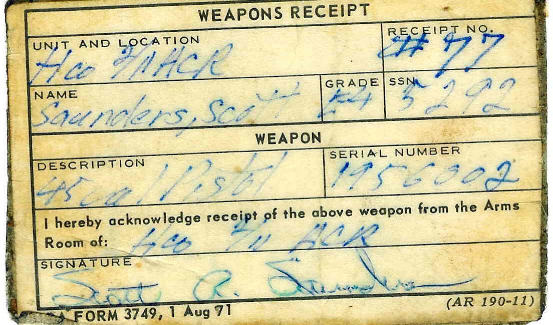 WEAPONS RECEIPT
UNIT AND LOCATION
RECEIPT NO.
Hco 2/11 ACR
#77
NAME
GRADE
SSN
Saunders, Scott
E4
5292
WEAPON
DESCRIPTION
SERIAL NUMBER
45 cal Pistol
1956002
I hereby acknowledge receipt of the above weapon from the Arms
Room of: Hco 2/11 ACR
SIGNATURE
Scott A. Saunders
DA FORM 3749, 1 Aug 71
(AR 190-11)